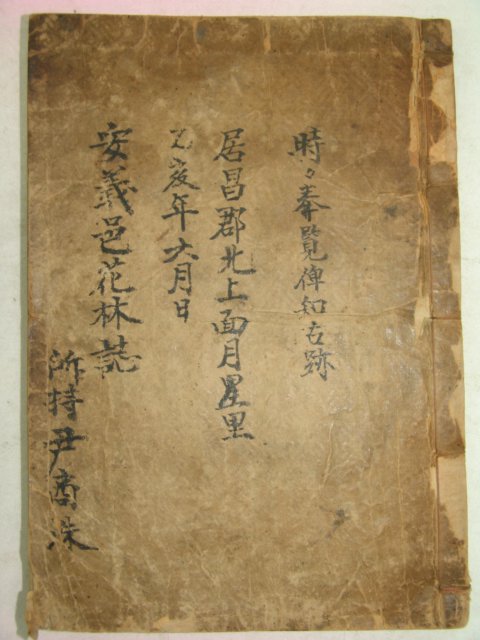 時々奉覽俾知古跡
居昌郡北上面月星里
乙亥年六月日
安義邑花林誌
所持尹商洙